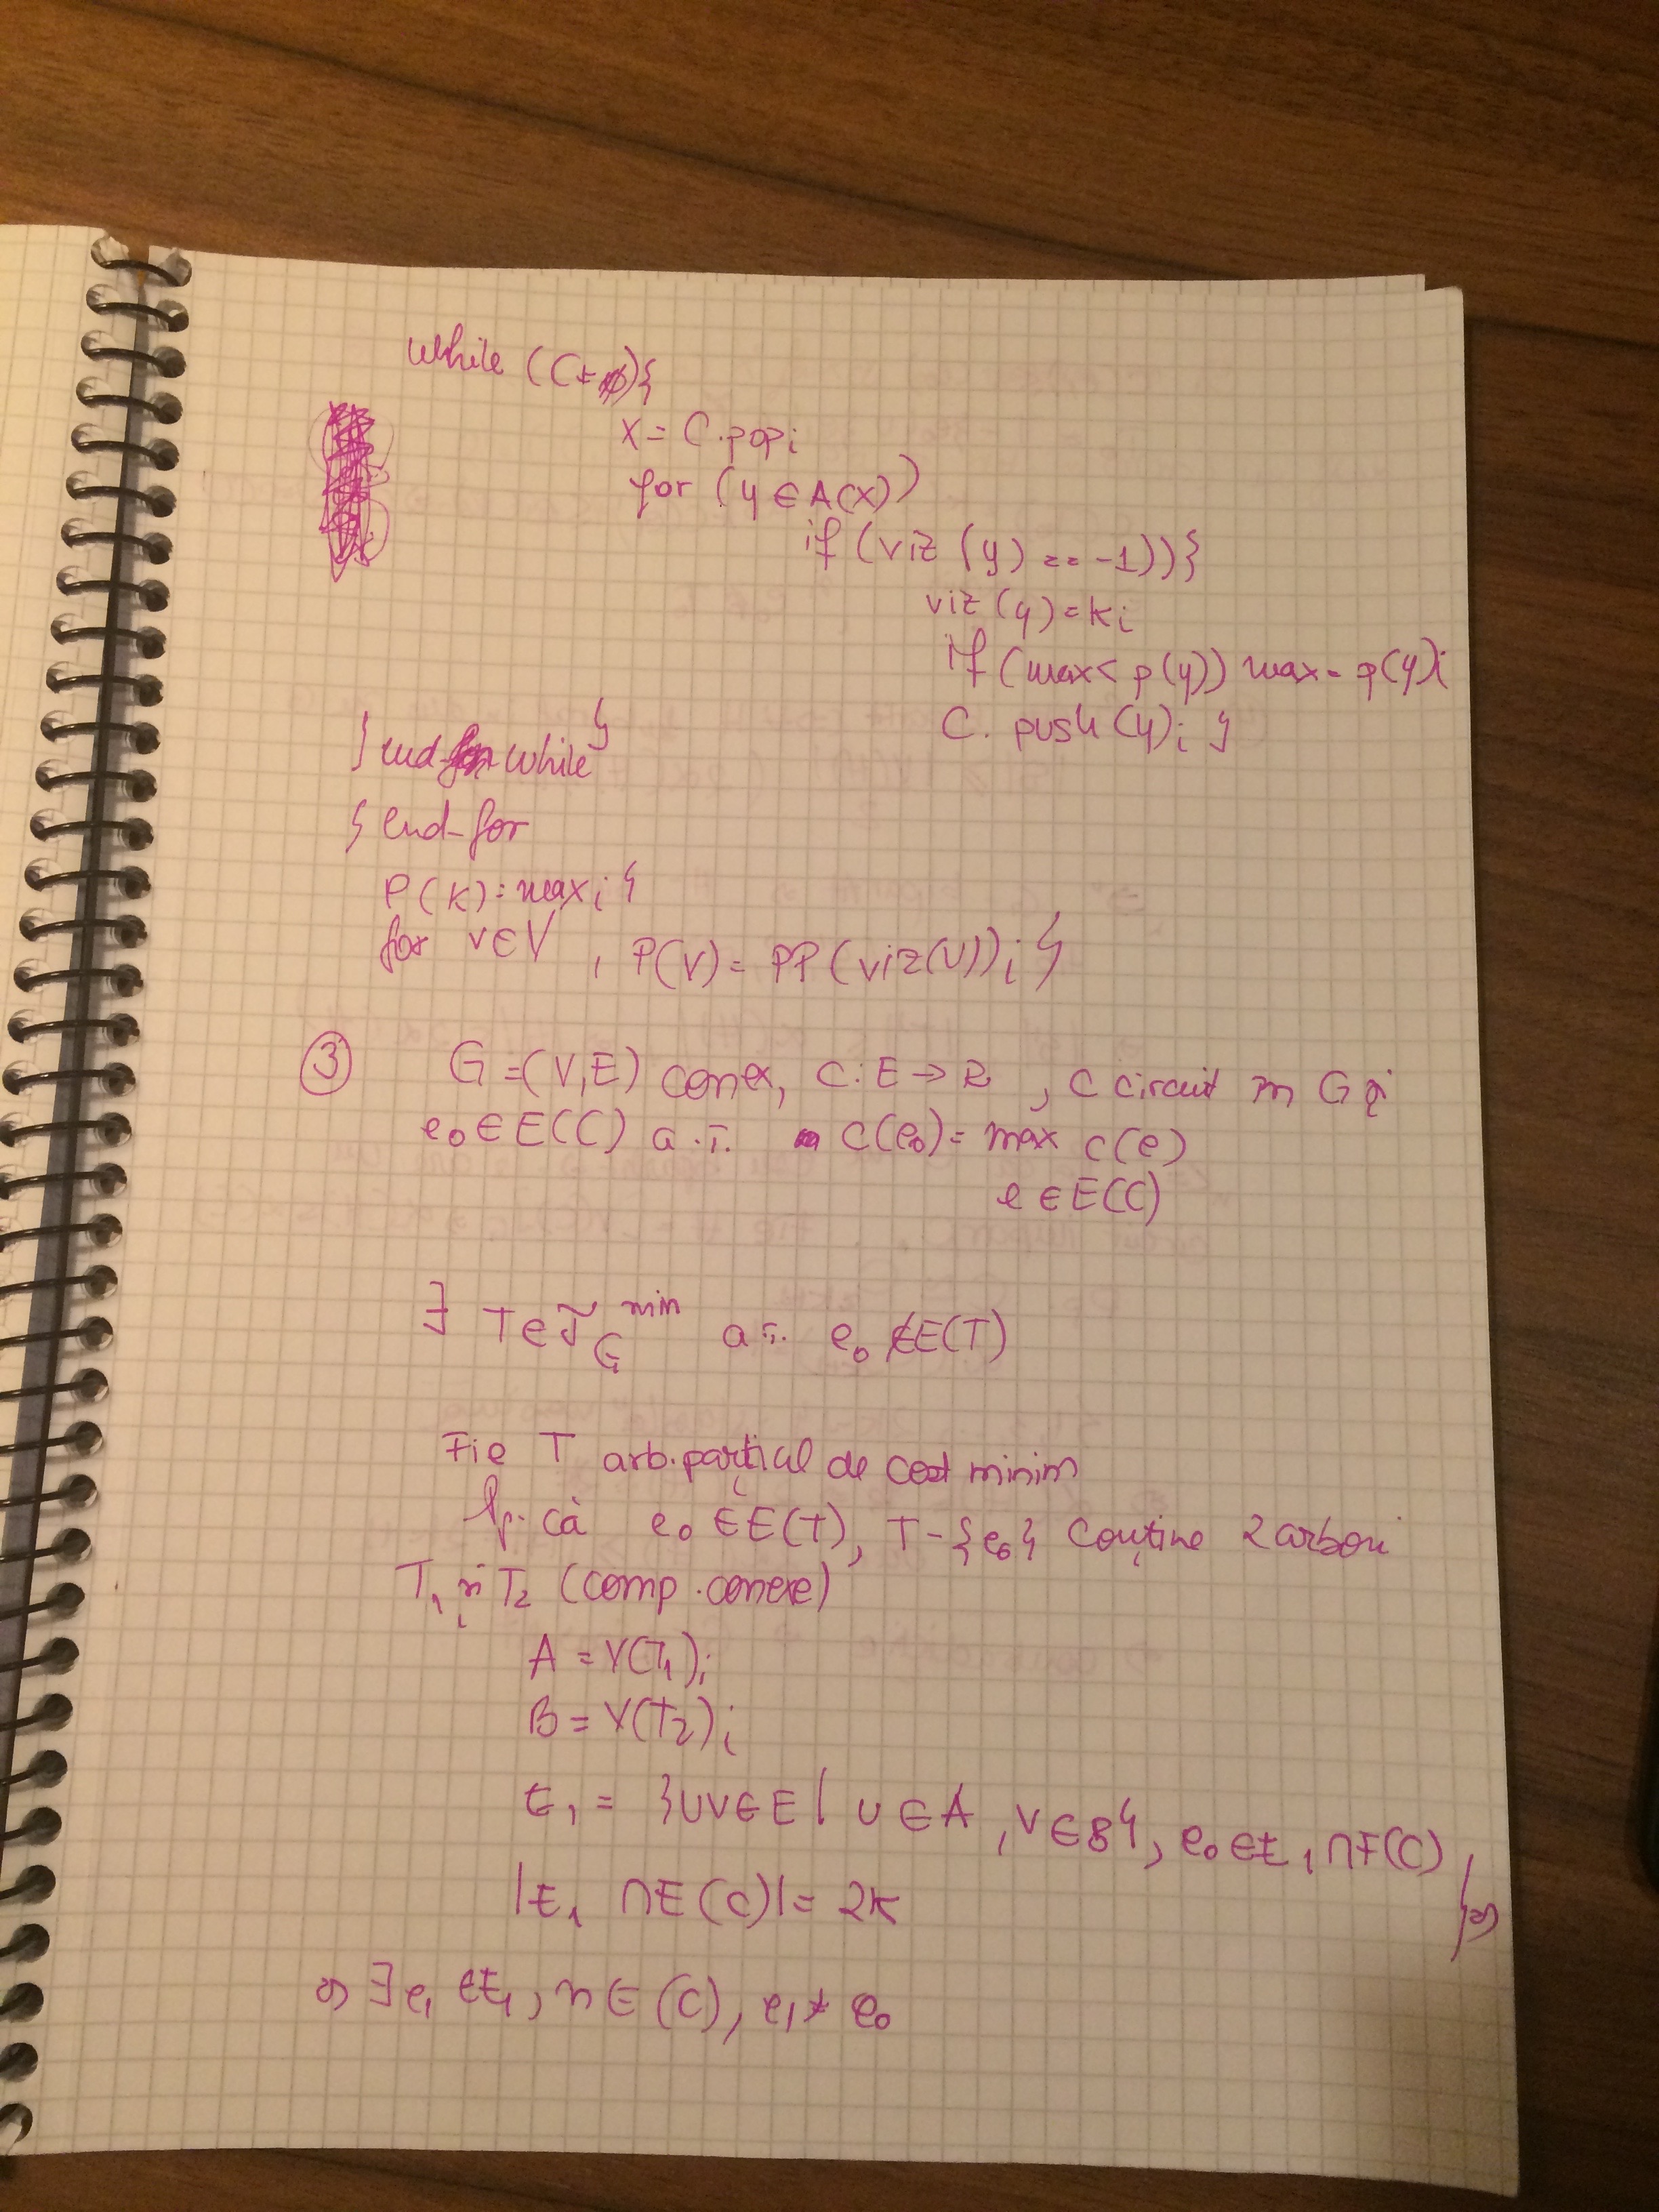 while (C ≠ ∅){
x = C.pop;
for (y ∈ A(x))
if (viz (y) == -1)){
viz (y) = k;
if (max < p(y)) max = p(y);
C. push (y); }
} end-while }
} end-for
P(K) = max; }
for v ∈ V , P(v) = PP (viz(v)); }
③ G = (V,E) conex, c: E → R , C circuit în G și
e₀ ∈ E(C) a.î. c(e₀) = max c(e)
e ∈ E(C)
∃ T ∈ 𝒯_G^min a.î. e₀ ∉ E(T)
Fie T arb. parțial de cost minim
Pp. că e₀ ∈ E(T), T - {e₀} conține 2 arbori
T₁ și T₂ (comp. conexe)
A = V(T₁);
B = V(T₂);
E₁ = {uv ∈ E | u ∈ A , v ∈ B}, e₀ ∈ E₁ ∩ E(C) ,
|E₁ ∩ E(C)| = 2k } ⇒
⇒ ∃ e₁ ∈ E₁ , ∩ E (C), e₁ ≠ e₀